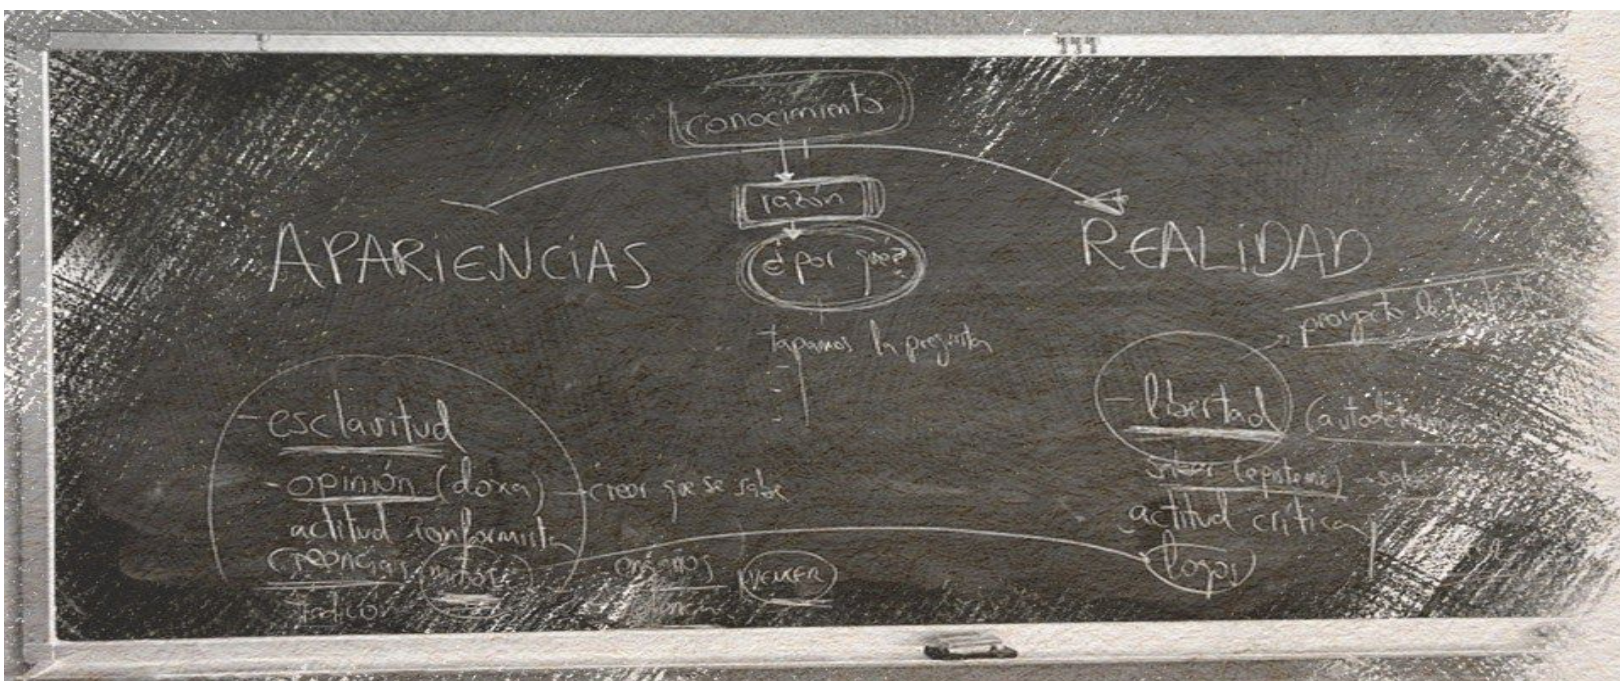 conocimiento
razón
¿por qué?
APARiENCiAS
REALiDAD
tapamos la pregunta
proyecto
- esclavitud
- opinión (doxa) → creer que se sabe
actitud conformista
creencias mitos
VENCER
- libertad
saber (episteme) - saber
actitud crítica
logos